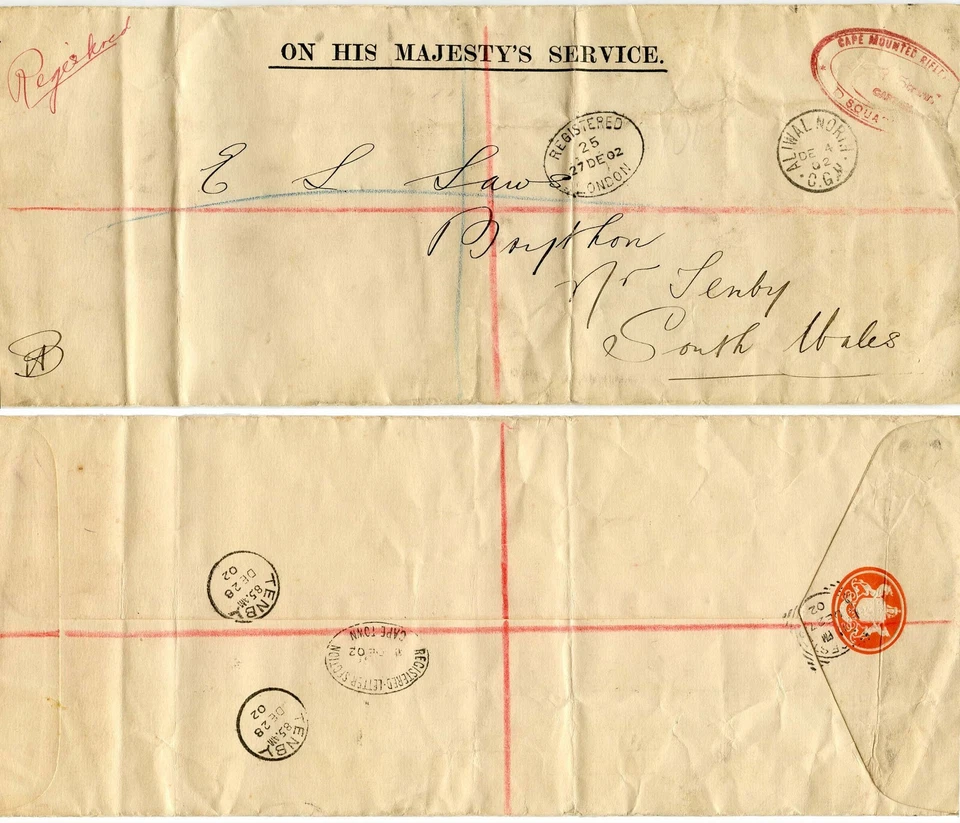 Registered
ON HIS MAJESTY'S SERVICE.
CAPE MOUNTED RIFLE
D SQUA
REGISTERED
25
27 DE 02
LONDON
ALIWAL NORTH
DE 4
02
C.G.H.
E S Laws
Nr Tenby
South Wales
TENBY
8 5. AM
DE 28
02
REGISTERED-LETTER
DE 02
CAPE TOWN
TENBY
8 5. AM
DE 28
02
PM
02